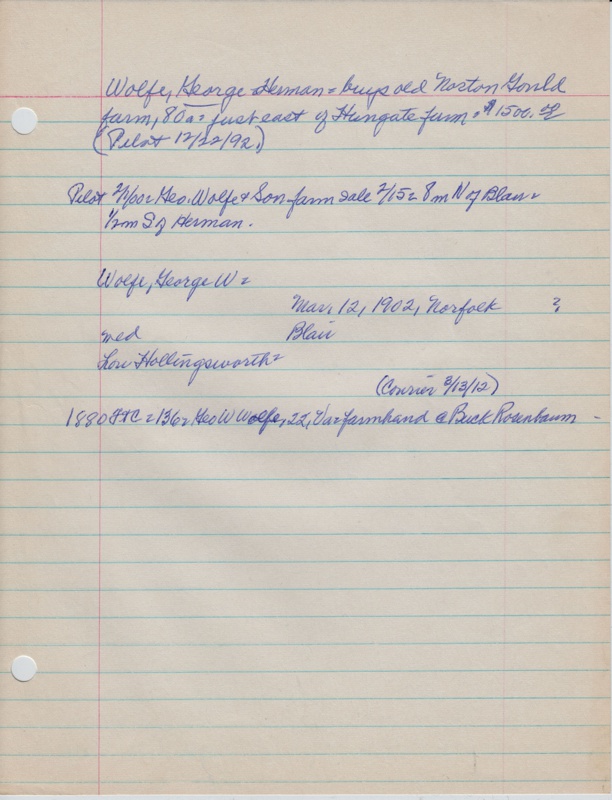 Wolfe, George = Herman = buys old Norton Gould
farm, 80a = just east of Hungate farm = $1500.00
(Pilot 12/22/92)
Pilot 2/1/00 = Geo. Wolfe + Son farm sale 2/15 = 8m N of Blair =
1/2m S of Herman.
Wolfe, George W =
Mar. 12, 1902, Norfolk ?
med Blair
Lou Hollingsworth =
(Courier 3/13/12)
1880 = 136 = Geo W Wolfe, 22, Va = farmhand @ Buck Rosenbaum -